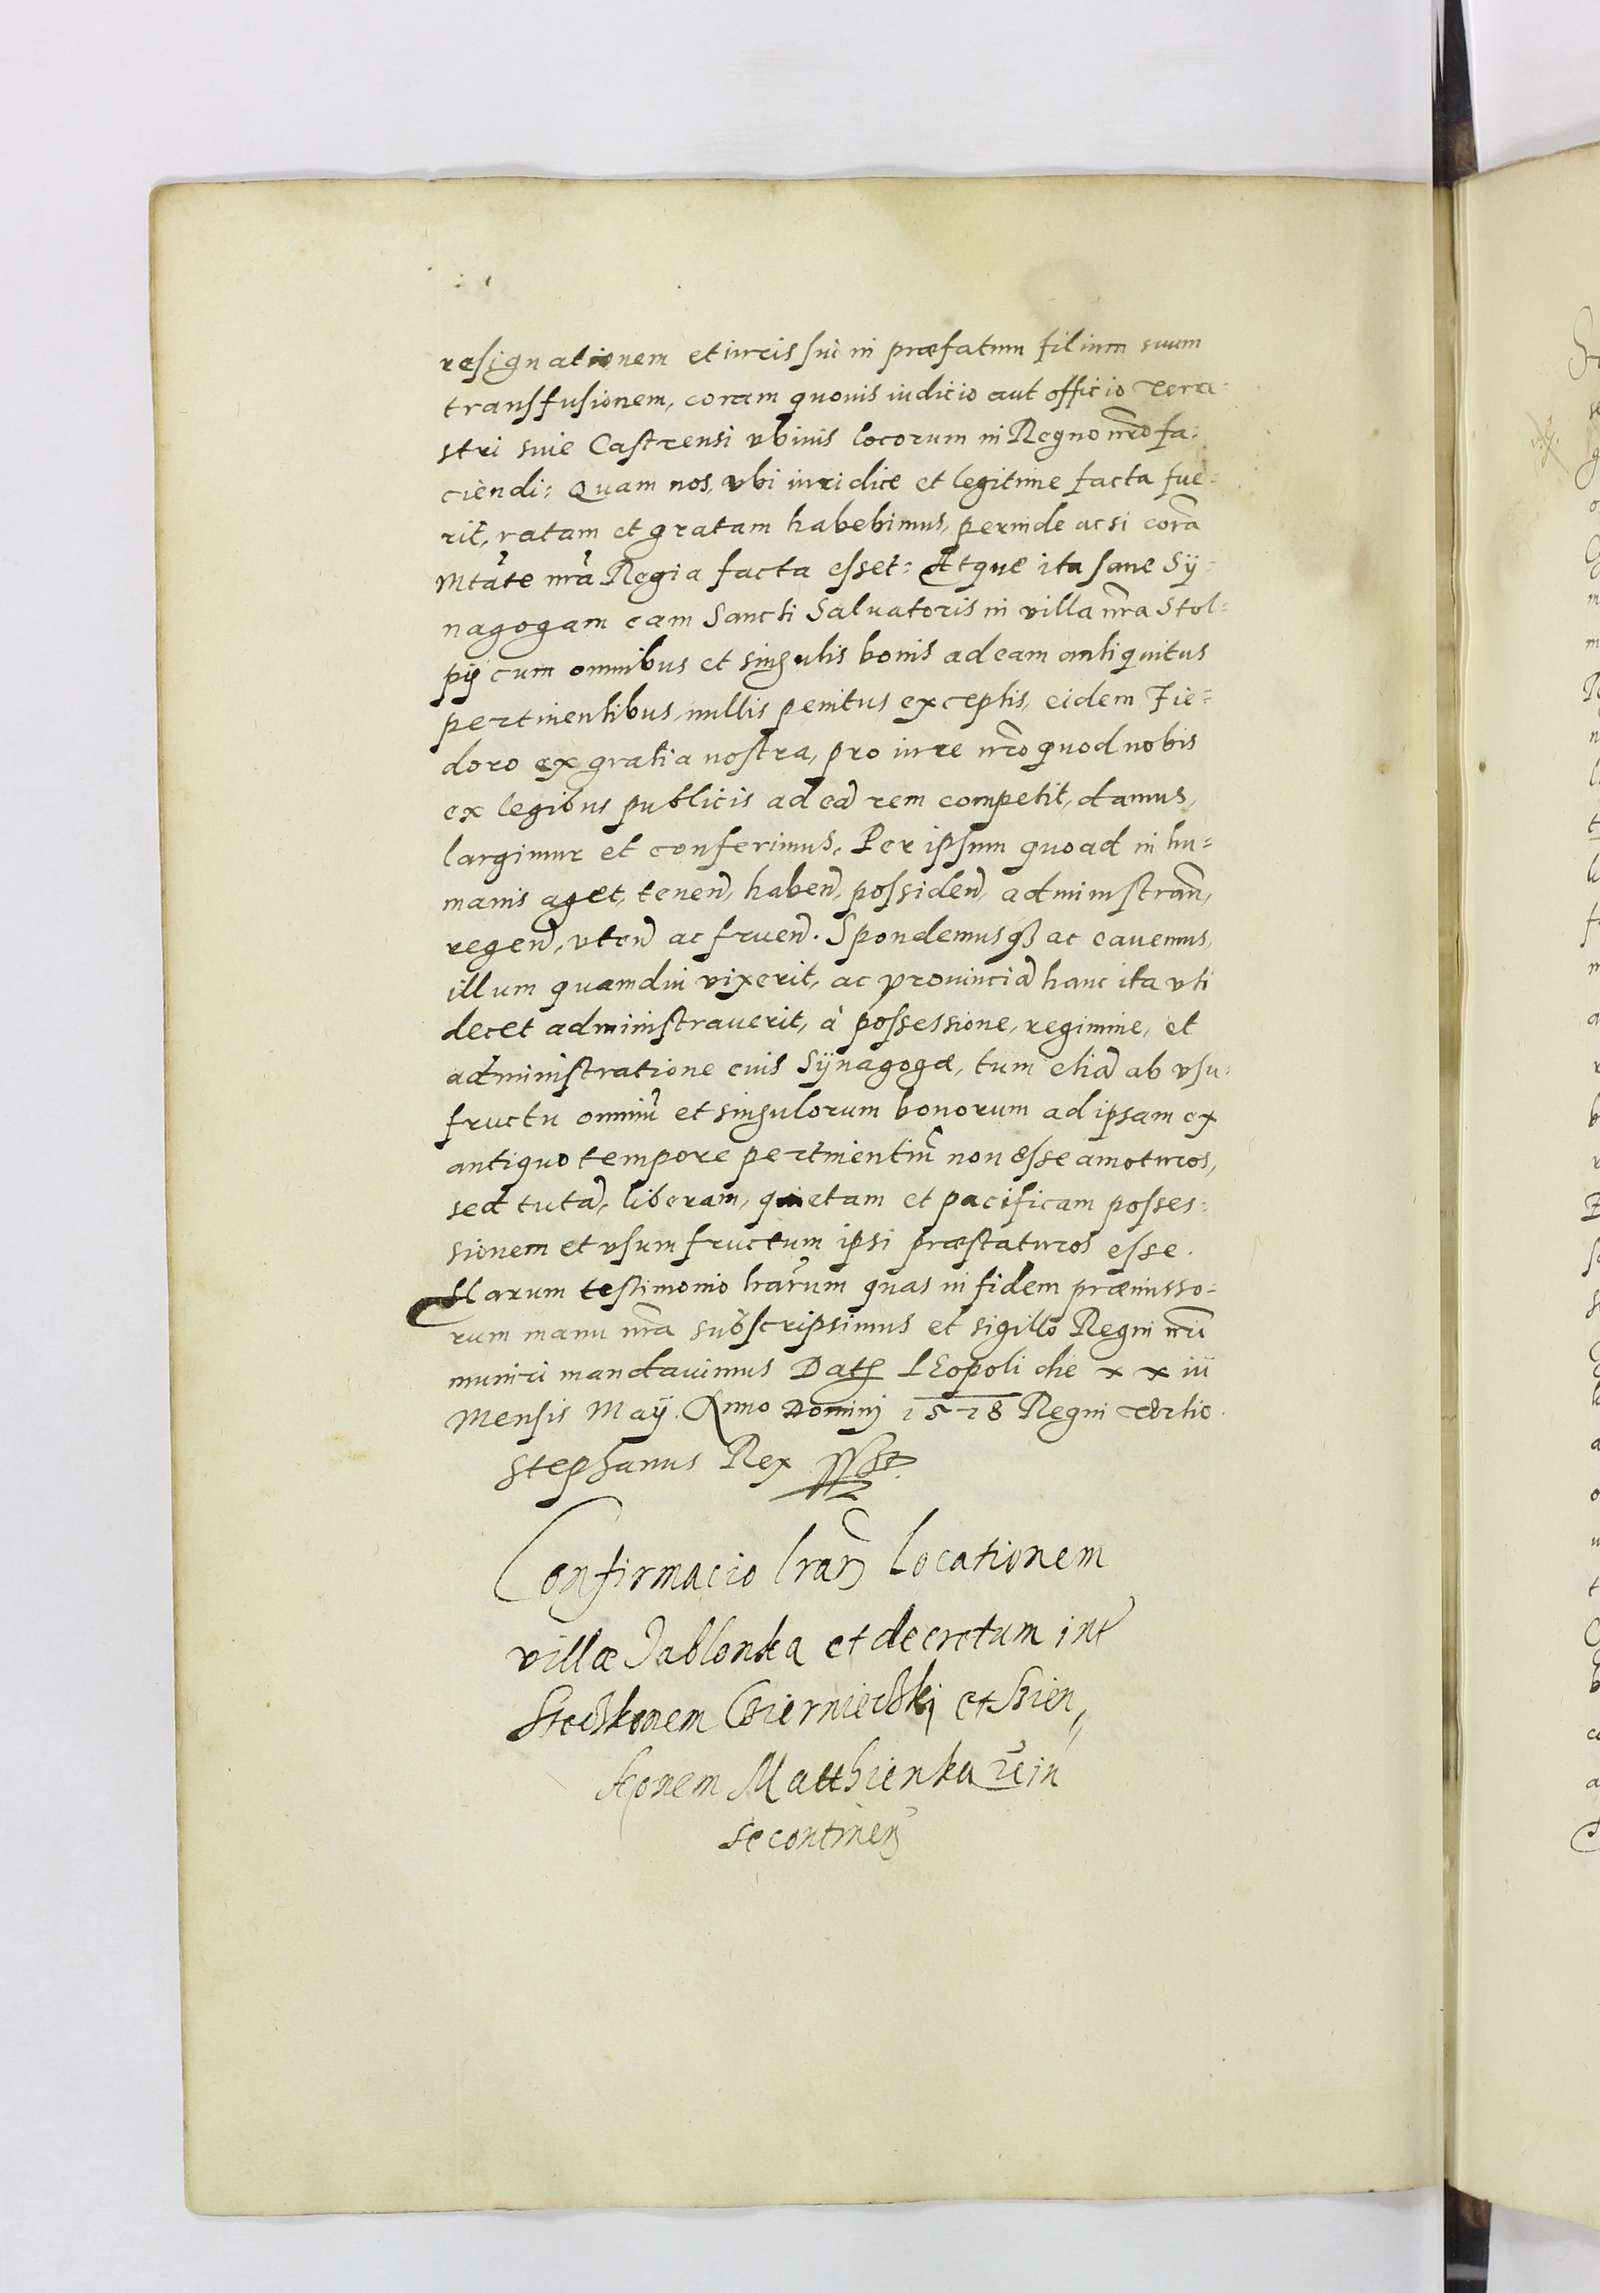 resignationem et iuris sui in præfatum filium suum
transfusionem, coram quouis iudicio aut officio Terre=
stri siue Castrensi vbiuis locorum in Regno nr̃o fa=
ciendi: Quam nos, vbi iuridice et legitime facta fue=
rit, ratam et gratam habebimus, perinde ac si corã
Mtãte nr̃a Regia facta esset: Atque ita sane Sÿ=
nagogam eam Sancti Saluatoris in villa nr̃a Stol=
pÿ cum omnibus et singulis bonis ad eam antiquitus
pertinentibus, nullis penitus exceptis, eidem Fie=
doro ex gratia nostra, pro iure nr̃o quod nobis
ex legibus publicis ad eã rem competit, damus,
largimur et conferimus, Per ipsum quoad in hu=
manis aget, tenen̄, haben̄, possiden̄, administran̄,
regen̄, vten̄ ac fruen̄. Spondemusqȝ ac cauemus,
illum quamdiu vixerit, ac prouinciã hanc ita vti
decet administrauerit, à possessione, regimine, et
administratione eius Sÿnagogæ, tum etiã ab vsu=
fructu omniũ et singulorum bonorum ad ipsam ex
antiquo tempore pertinentiũ non esse amoturos,
sed tutã, liberam, quietam et pacificam posses=
sionem et vsumfructum ipsi præstaturos esse.
Harum testimonio lr̃arum quas in fidem præmisso=
rum manu nr̃a subscripsimus et sigillo Regni nr̃i
muniri mandauimus Datʒ LEopoli die x x iii
Mensis Maÿ. Anno Dominj 1578 Regni tertio.
Stephanus Rex sst
Confirmacio lrar̃ locationem
villæ Jablonka et decretum int̃
Steczkonem Cziernieczkj et Hien„
konem Matthienka r̃e in
se continen̄